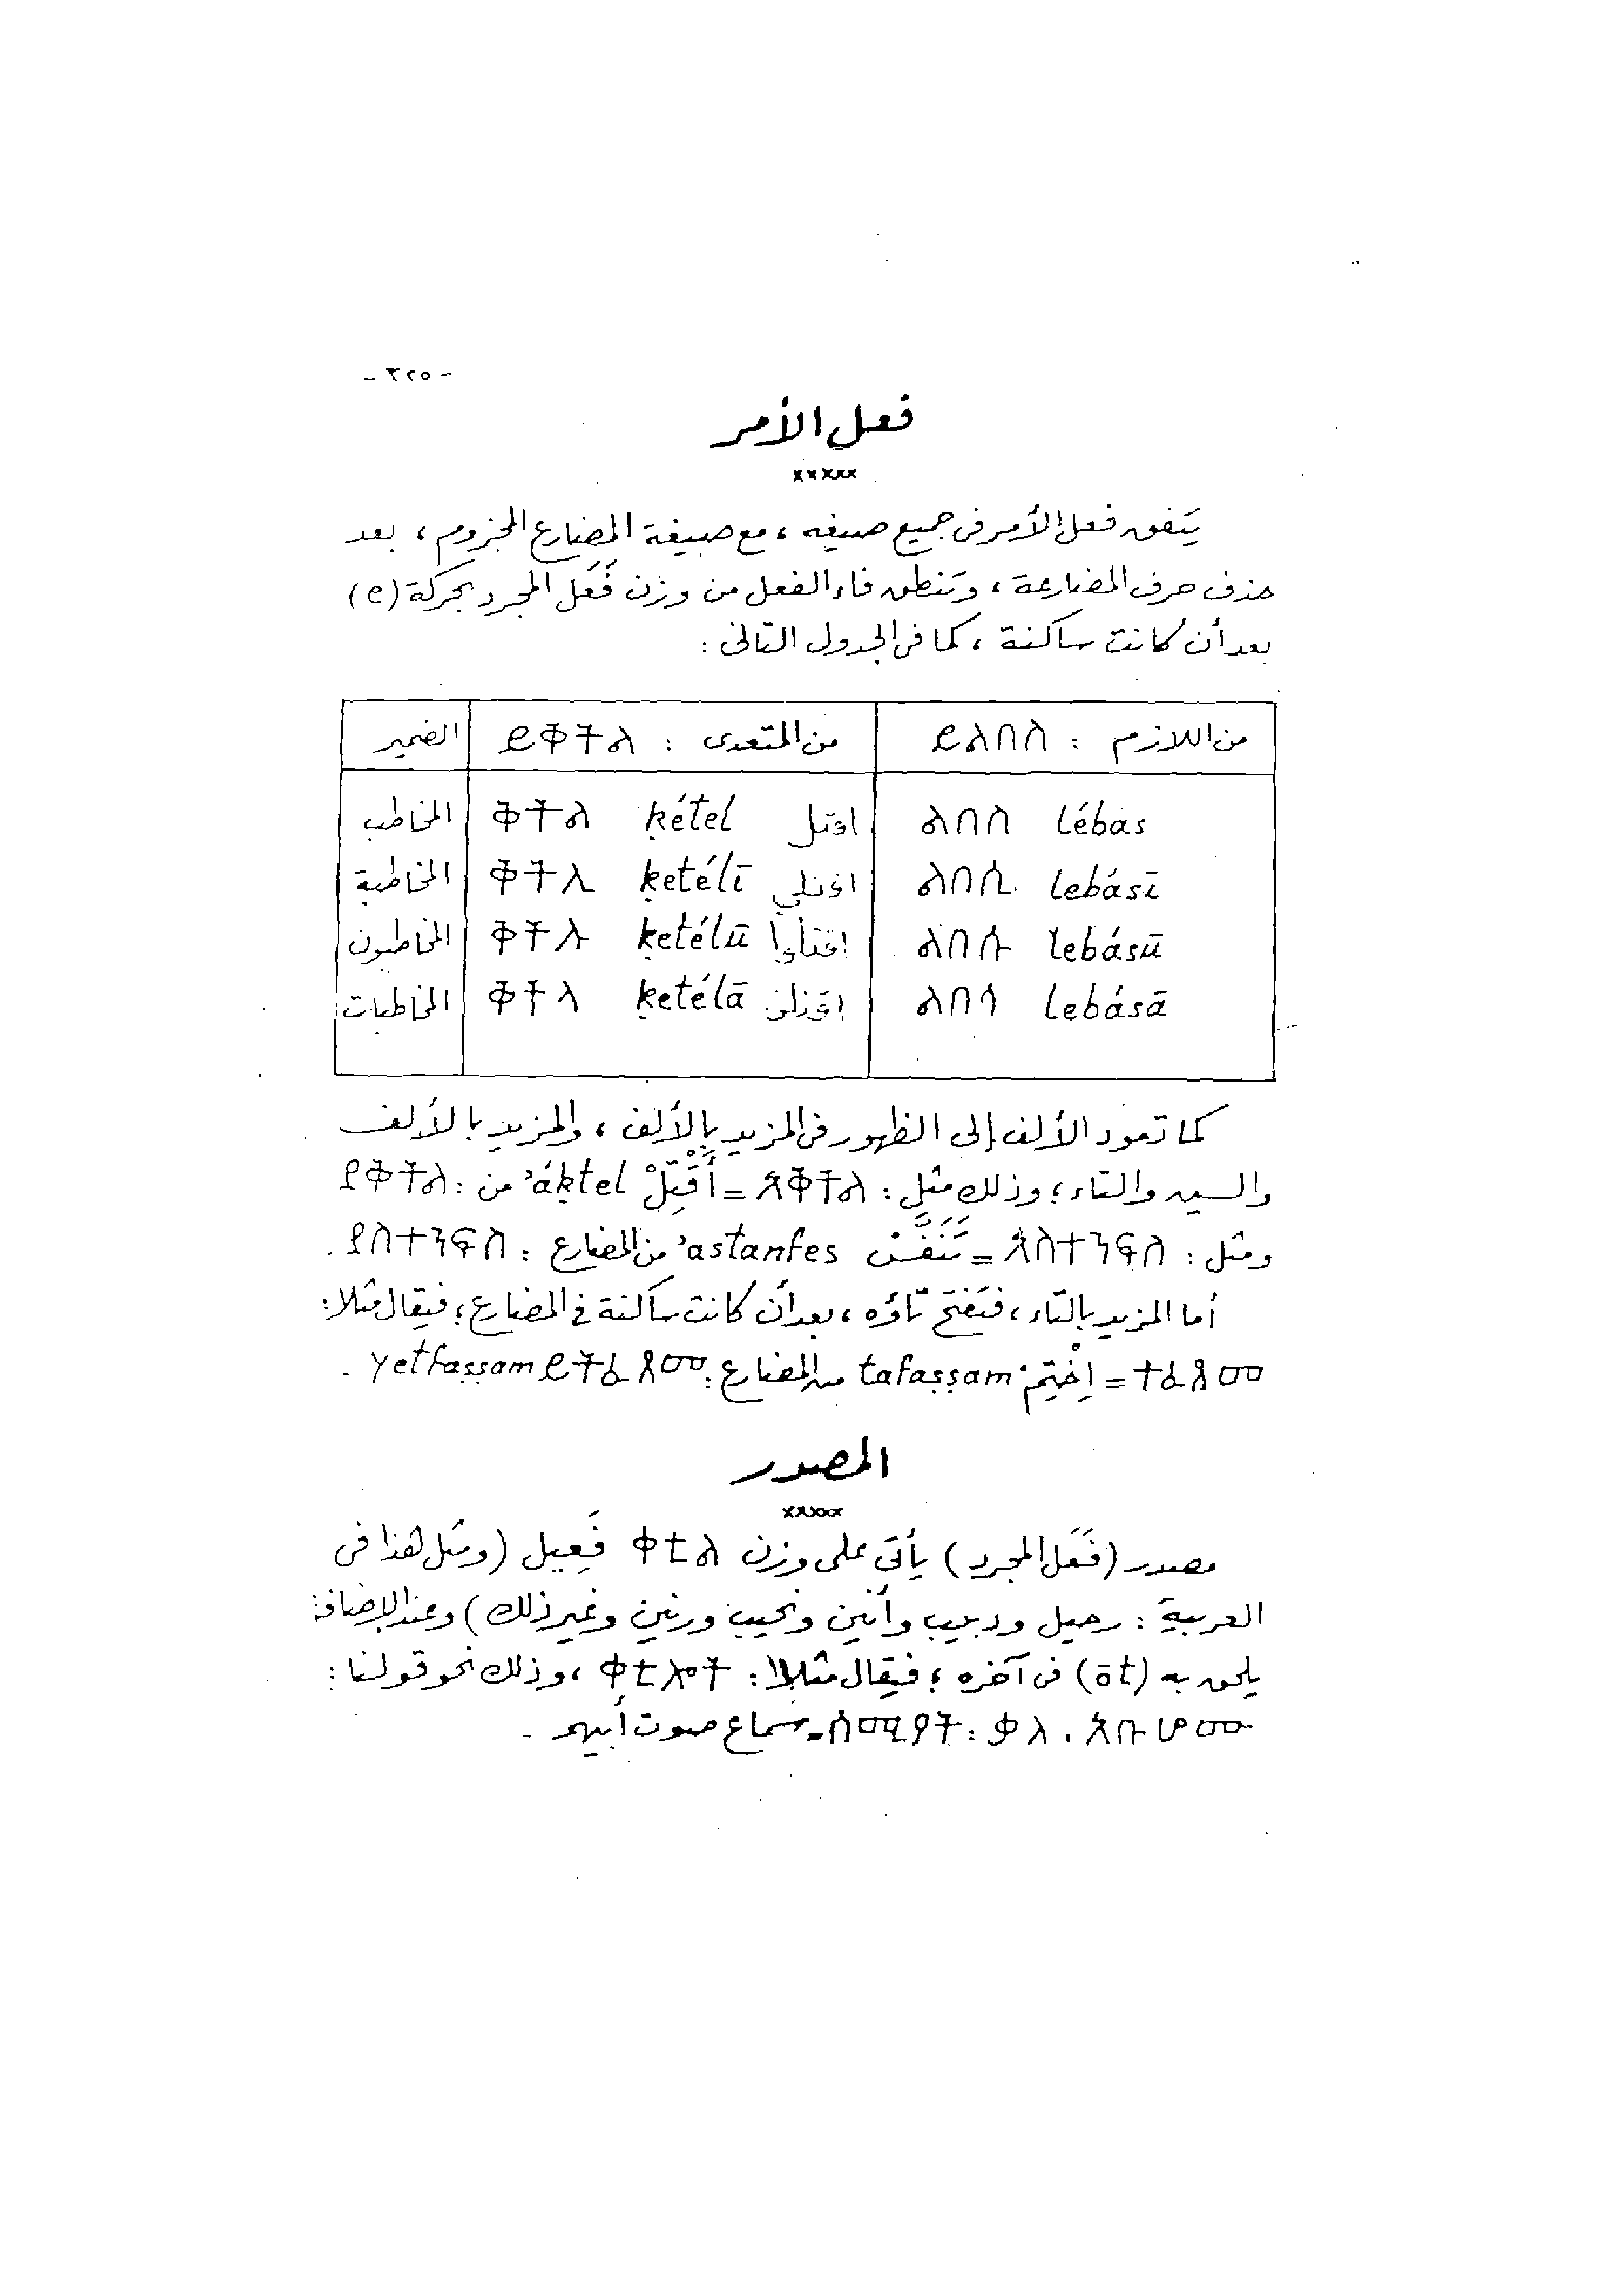 - ٣٢٥ -
فعل الأمر
×××××
يتفق فعل الأمر فى جميع صيغه ، مع صيغة المضارع المجزوم ، بعد
حذف حرف المضارعة ، وتنطق فاء الفعل من وزن فَعَل المجرد بحركة (e)
بعد أن كانت ساكنة ، كما فى الجدول التالى :
الضمير | من المتعدى : ይቅትል | من اللازم : ይልበስ
المخاطب | ቅትል ḳétel اقتل | ልበስ lébas
المخاطبة | ቅትሊ ḳetélī اقتلي | ልበሲ lebásī
المخاطبون | ቅትሉ ḳetélū اقتلوا | ልበሱ lebásū
المخاطبات | ቅትላ ḳetélā اقتلن | ልበሳ lebásā
كما تعود الألف إلى الظهور فى المزيد بالألف ، والمزيد بالألف
والسين والتاء ؛ وذلك مثل : አቅትል = أَقْتِلْ ʾáḳtel من : ያቅትል
ومثل : አስተንፍስ = تَنَفَّسْ ʾastanfes من المضارع : ያስተንፍስ .
أما المزيد بالتاء ، فتفتح تاؤه ، بعد أن كانت ساكنة فى المضارع ؛ فيقال مثلا :
ተፈጸም = اِخْتِتِمْ tafaṣṣam من المضارع : ይትፈጸም yetfaṣṣam .
المصدر
×××××
مصدر (فَعَل المجرد) يأتى على وزن ቀቲል فَعِيل (ومثل هذا فى
العربية : رحيل ودبيب وأنين ونحيب ورنين وغير ذلك) وعند الإضافة
يلحق به (ōt) فى آخره ؛ فيقال مثلا : ቀቲሎት ، وذلك نحو قولنا :
ሰሚዖት : ቃለ : አቡሆሙ = سماع صوت أبيهم .